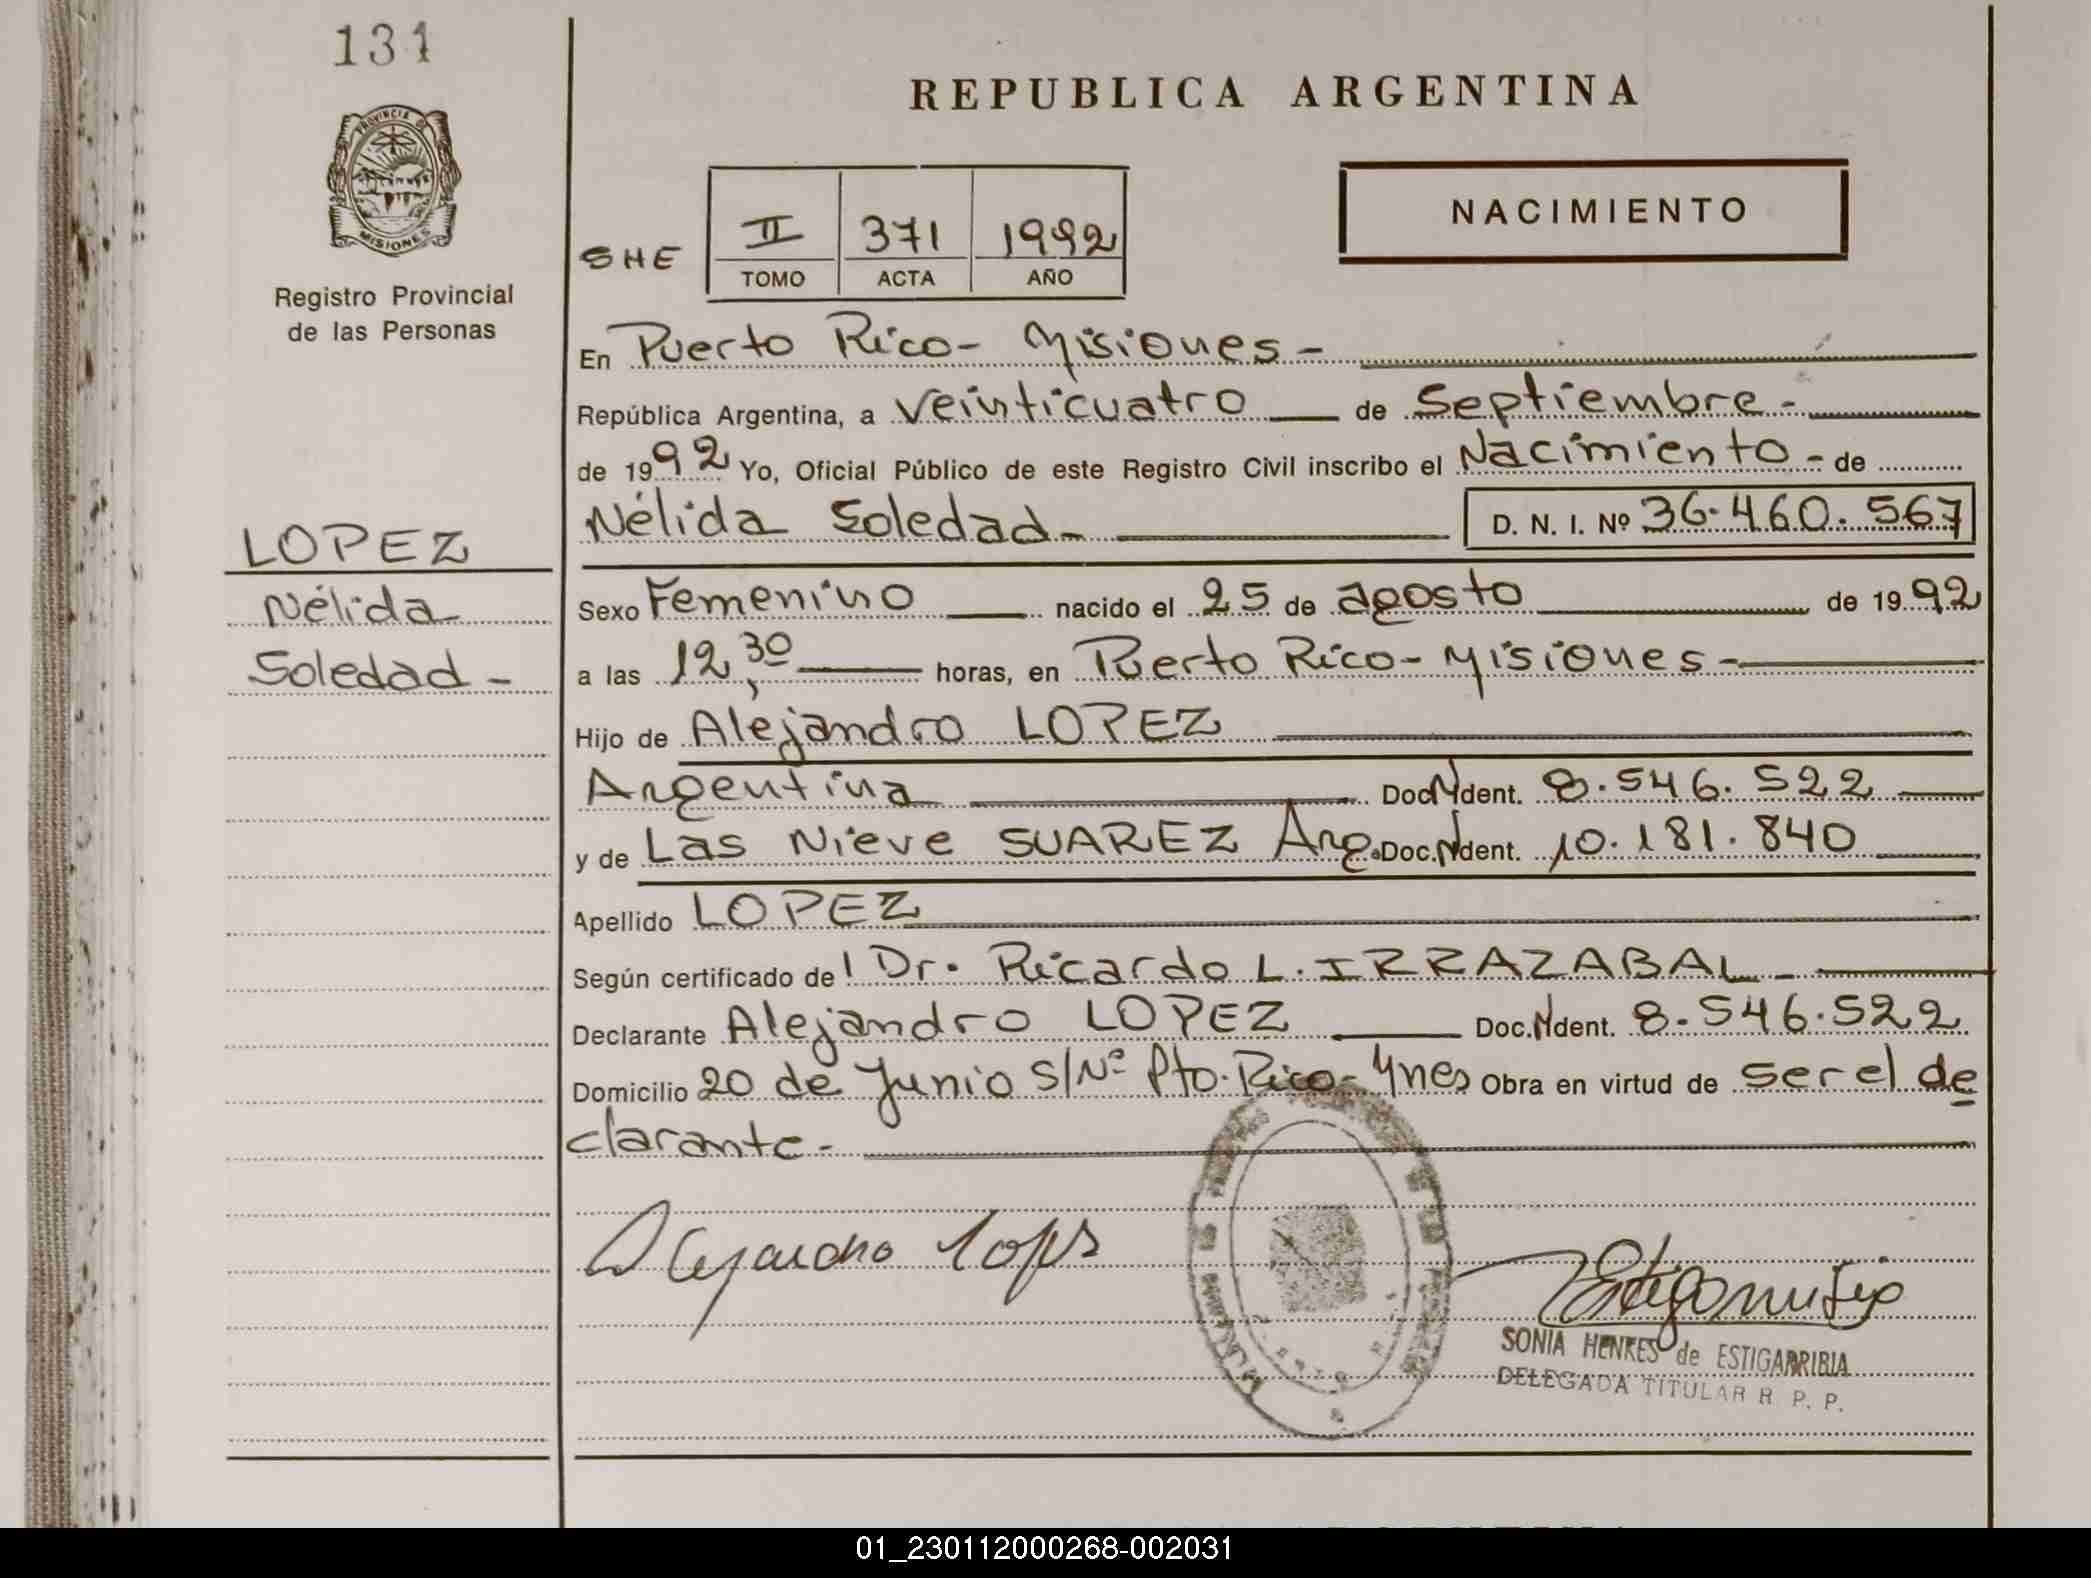 131
PROVINCIA DE
MISIONES
Registro Provincial
de las Personas
LOPEZ
Nélida
Soledad -
REPUBLICA ARGENTINA
NACIMIENTO
SHE
II 371 1992
TOMO ACTA AÑO
En Puerto Rico - Misiones -
República Argentina, a veinticuatro de Septiembre -
de 1992 Yo, Oficial Público de este Registro Civil inscribo el Nacimiento - de
Nélida Soledad - D. N. I. Nº 36.460.567
Sexo Femenino nacido el 25 de agosto de 1992
a las 12,30 horas, en Puerto Rico - Misiones -
Hijo de Alejandro LOPEZ
Argentina Doc. Ident. 8.546.522
y de Las Nieve SUAREZ Arg. Doc. Ident. 10.181.840
Apellido LOPEZ
Según certificado del Dr. Ricardo L. IRRAZABAL -
Declarante Alejandro LOPEZ Doc. Ident. 8.546.522
Domicilio 20 de Junio S/Nº Pto. Rico - Mnes Obra en virtud de ser el de
clarante -
Alejandro Lopes
SONIA HENKES de ESTIGARRIBIA
DELEGADA TITULAR R. P. P.
01_230112000268-002031